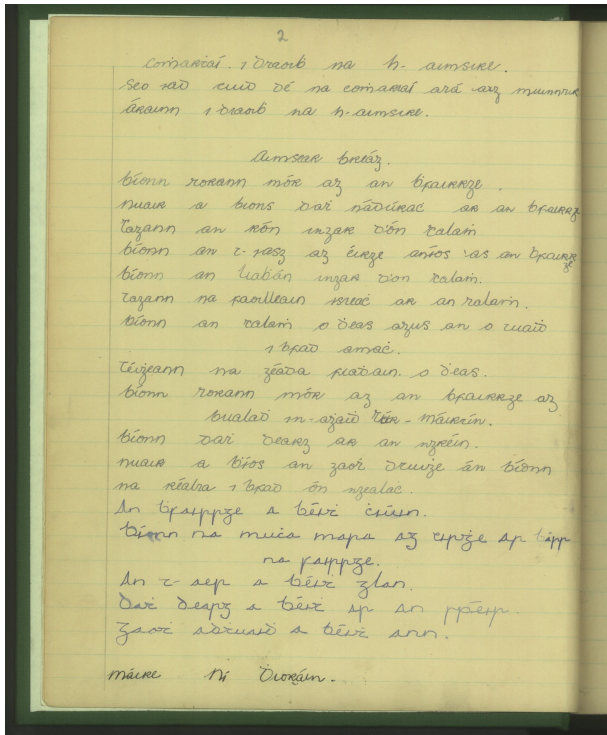 2
Comartaí i dtaoib na h-aimsire.
Seo iad cuid dé na comartaí atá aig muinntir
Árainn i dtaoib na h-aimsire.
Aimsear breág.
Bíonn torann mór ag an bfairrge.
Nuair a bíons dat nádúrac ar an bfairrge
Tagann an rón ingar d'ón talaṁ
Bíonn an t-iasg ag éirge aníos as an bfairrge
Bíonn an liabán ingar d'on talaṁ.
Tagann na faoilleáin isteac ar an talaṁ.
Bíonn an talaṁ ó ḋeas agus an ó tuaiḋ
i bfad amaċ.
Téiġeann na géaḋa fiaḋain ó ḋeas.
Bíonn torann mór ag an bfairrge ag
bualaḋ in-agaiḋ
Bíonn daṫ dearg ar an ngréin.
Nuair a ḃíos an gaoṫ druiḋṫe bíonn
na réalta i bfad ón ngealaċ.
An ḃfairrge a ḃéiṫ ciúin.
Bíonn na muca mara ag éirġe ar ḃárr
na fairrge.
An t-aer a ḃéiṫ glan.
Daṫ dearg a ḃéiṫ ar an
Gaoṫ aduaiḋ a ḃéiṫ ann.
Máire Ní Ḋioráin.